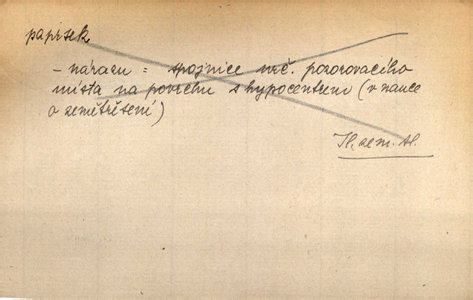 paprsek
– nárazu = spojnice urč. pozorovacího
místa na povrchu s hypocentrem (v nauce
o zemětřesení)
zem. sl.